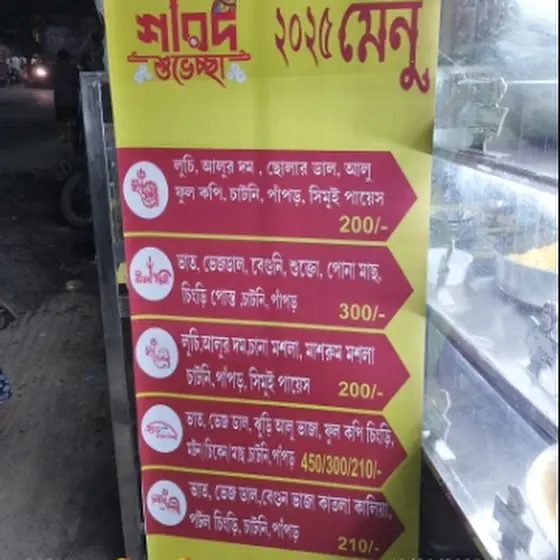 শারদ
শুভেচ্ছা
২০২৫ মেনু
লুচি, আলুর দম , ছোলার ডাল, আলু
ফুল কপি, চাটনি, পাঁপড়, সিমুই পায়েস
200/-
ভাত, ভেজডাল, বেগুনি, শুক্তো, পোনা মাছ,
চিংড়ি পোস্ত ,চাটনি, পাঁপড়
300/-
লুচি,আলুর দম,চানা মশলা, মাশরুম মশলা
চাটনি,পাঁপড়, সিমুই পায়েস
200/-
ভাত, ভেজ ডাল, ঝুড়ি আলু ভাজা, ফুল কপি চিংড়ি,
মটন/চিকেন/মাছ ,চাটনি,পাঁপড় 450/300/210/-
ভাত, ভেজ ডাল,,বেগুন ভাজা কাতলা কালিয়া,
পটল চিংড়ি, চাটনি,পাঁপড়
210/-